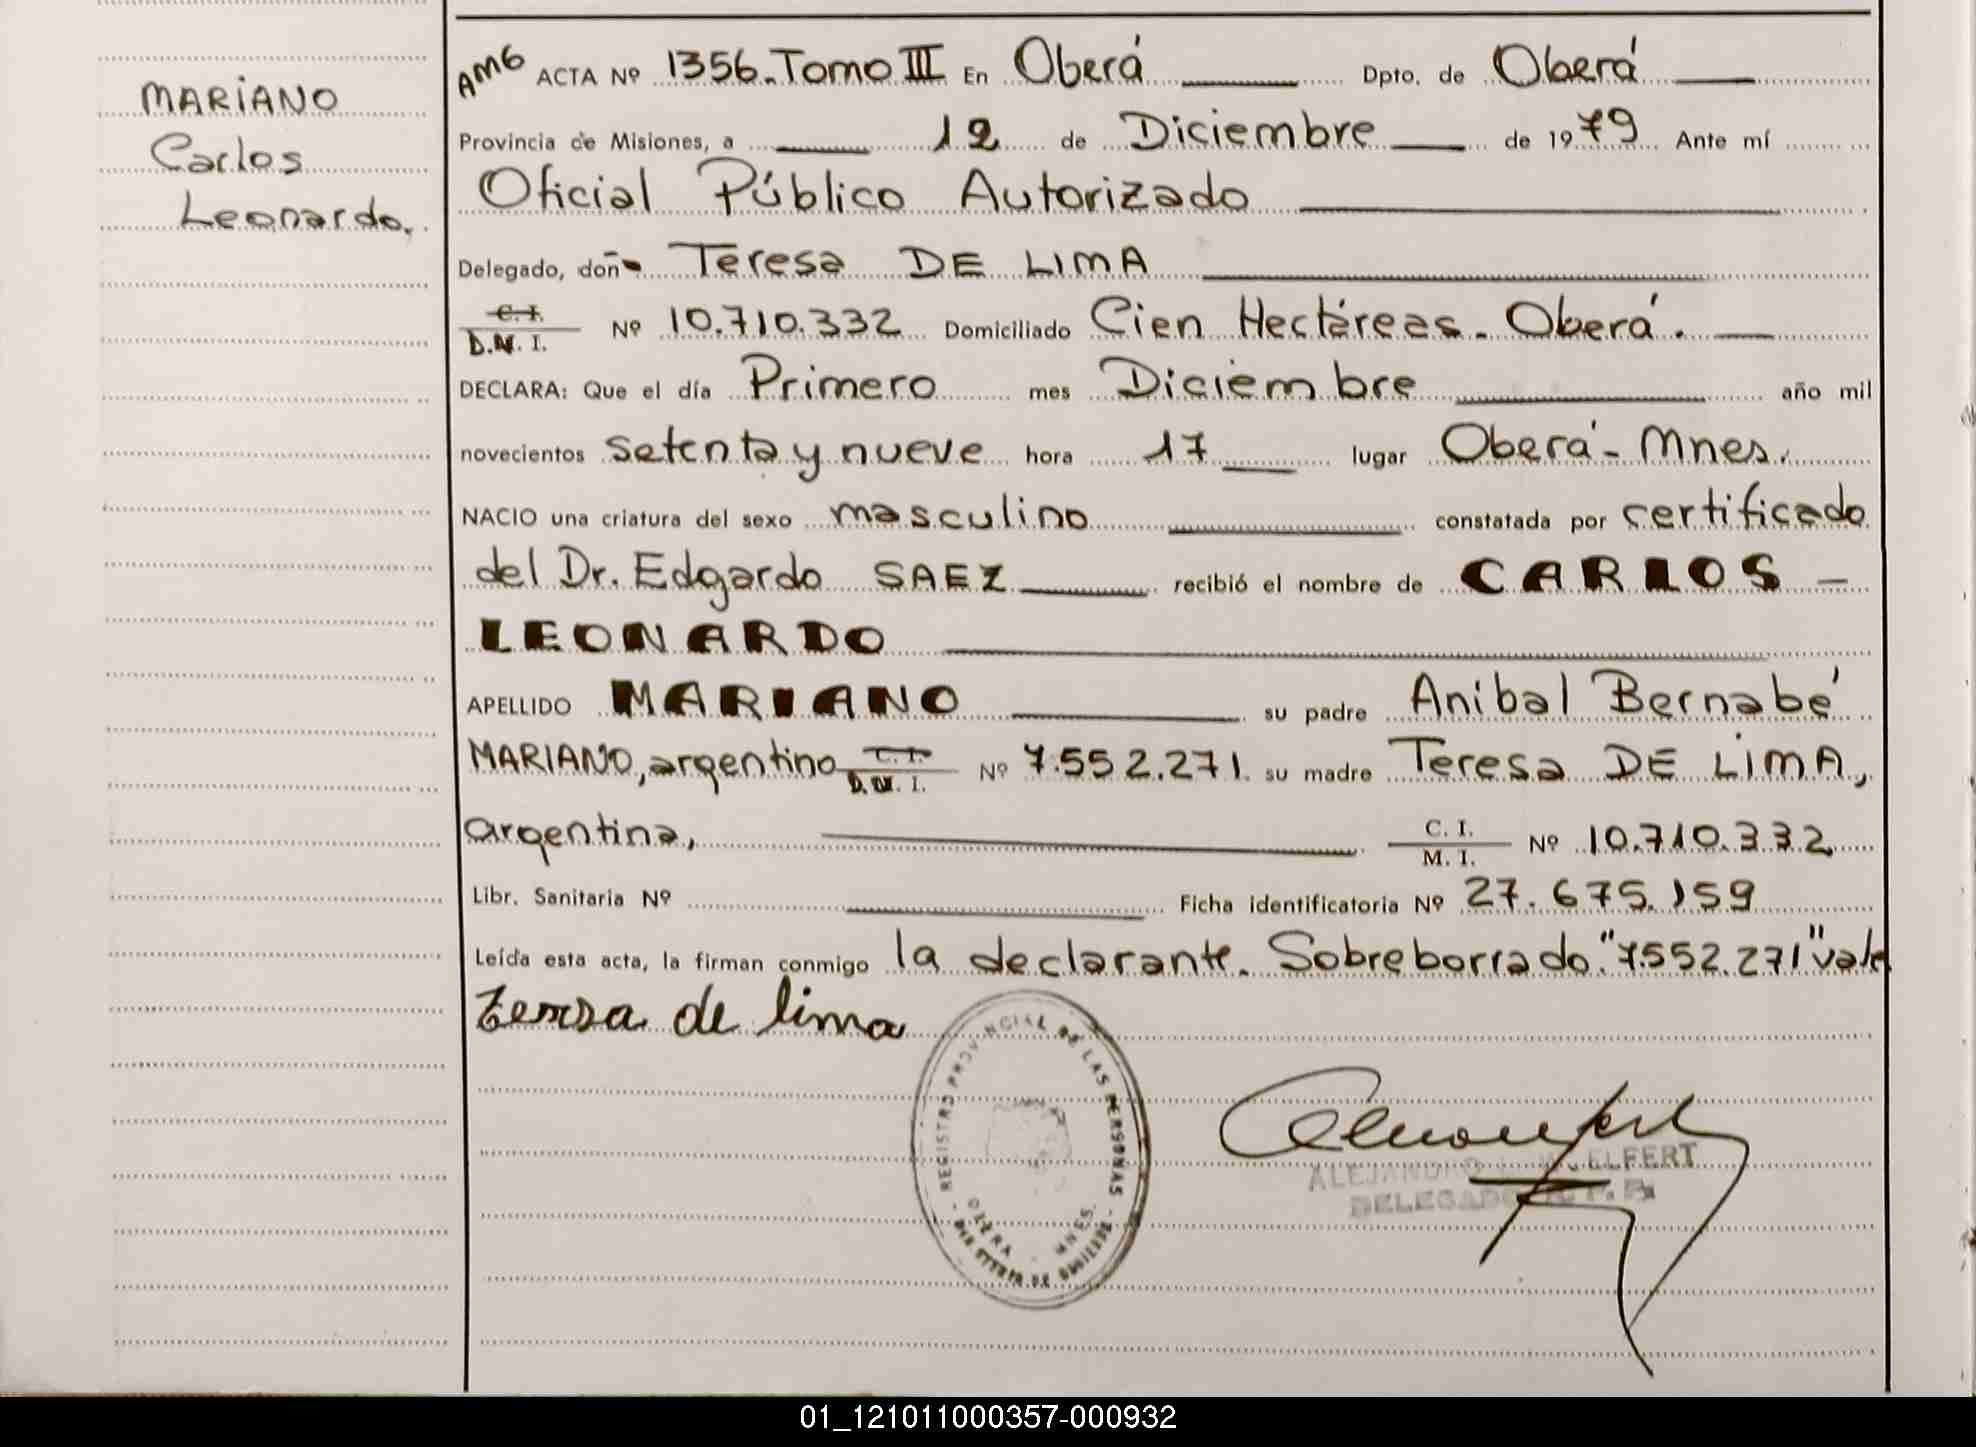 MARIANO
Carlos
Leonardo.
AMG ACTA Nº 1356. Tomo III En Oberá Dpto. de Oberá
Provincia de Misiones, a 12 de Diciembre de 1979 Ante mí
Oficial Público Autorizado
Delegado, doña Teresa DE LIMA
C. I.
D.N. I. Nº 10.710.332 Domiciliado Cien Hectáreas. Oberá.
DECLARA: Que el día Primero mes Diciembre año mil
novecientos setenta y nueve hora 17 lugar Oberá - Mnes.
NACIO una criatura del sexo masculino constatada por certificado
del Dr. Edgardo SAEZ recibió el nombre de CARLOS
LEONARDO
APELLIDO MARIANO su padre Anibal Bernabé
MARIANO, argentino C. I. D.N. I. Nº 7.552.271. su madre Teresa DE LIMA,
argentina, C. I. M. I. Nº 10.710.332
Libr. Sanitaria Nº Ficha identificatoria Nº 27.675.159
Leída esta acta, la firman conmigo la declarante. Sobreborrado: "7.552.271" vale
teresa de lima
REGISTRO PROVINCIAL DE LAS PERSONAS
OBERA - MNES.
ALEJANDRO
DELEGADO R. P. P.
01_121011000357-000932